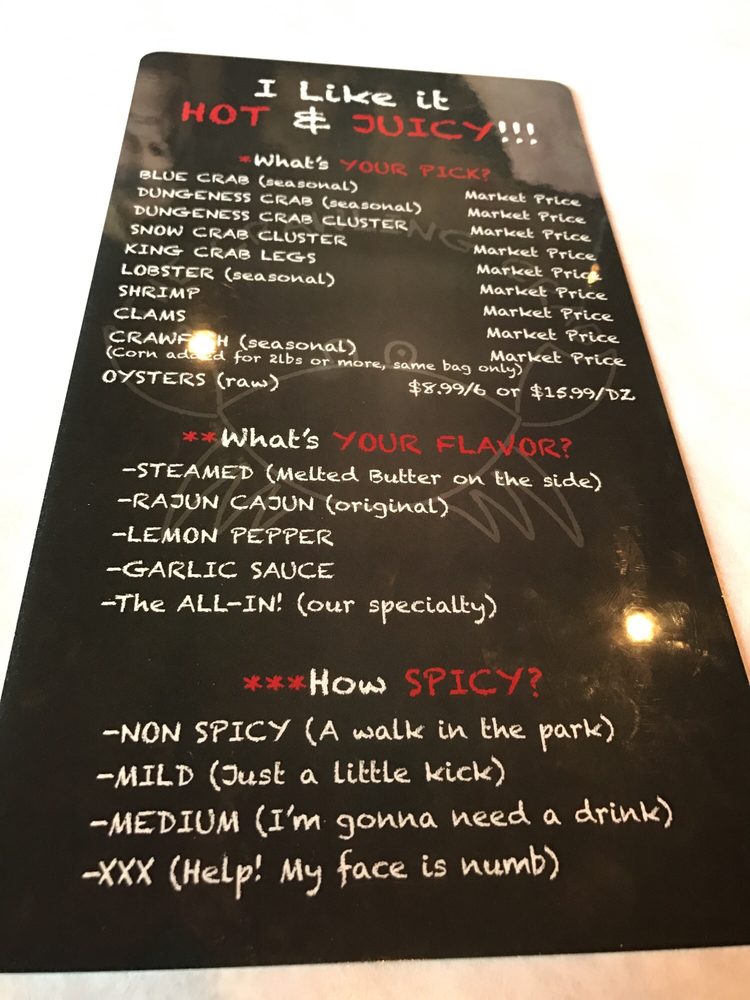 I Like it
HOT & JUICY!!!
*What's YOUR PICK?
BLUE CRAB (seasonal) Market Price
DUNGENESS CRAB (seasonal) Market Price
DUNGENESS CRAB CLUSTER Market Price
SNOW CRAB CLUSTER Market Price
KING CRAB LEGS Market Price
LOBSTER (seasonal) Market Price
SHRIMP Market Price
CLAMS Market Price
(seasonal) Market Price
(Corn added for 2lbs or more, same bag only)
OYSTERS (raw) $8.99/6 or $15.99/DZ
**What's YOUR FLAVOR?
-STEAMED (Melted Butter on the side)
-RAJUN CAJUN (original)
-LEMON PEPPER
-GARLIC SAUCE
-The ALL-IN! (our specialty)
***How SPICY?
-NON SPICY (A walk in the park)
-MILD (Just a little kick)
-MEDIUM (I'm gonna need a drink)
-XXX (Help! My face is numb)